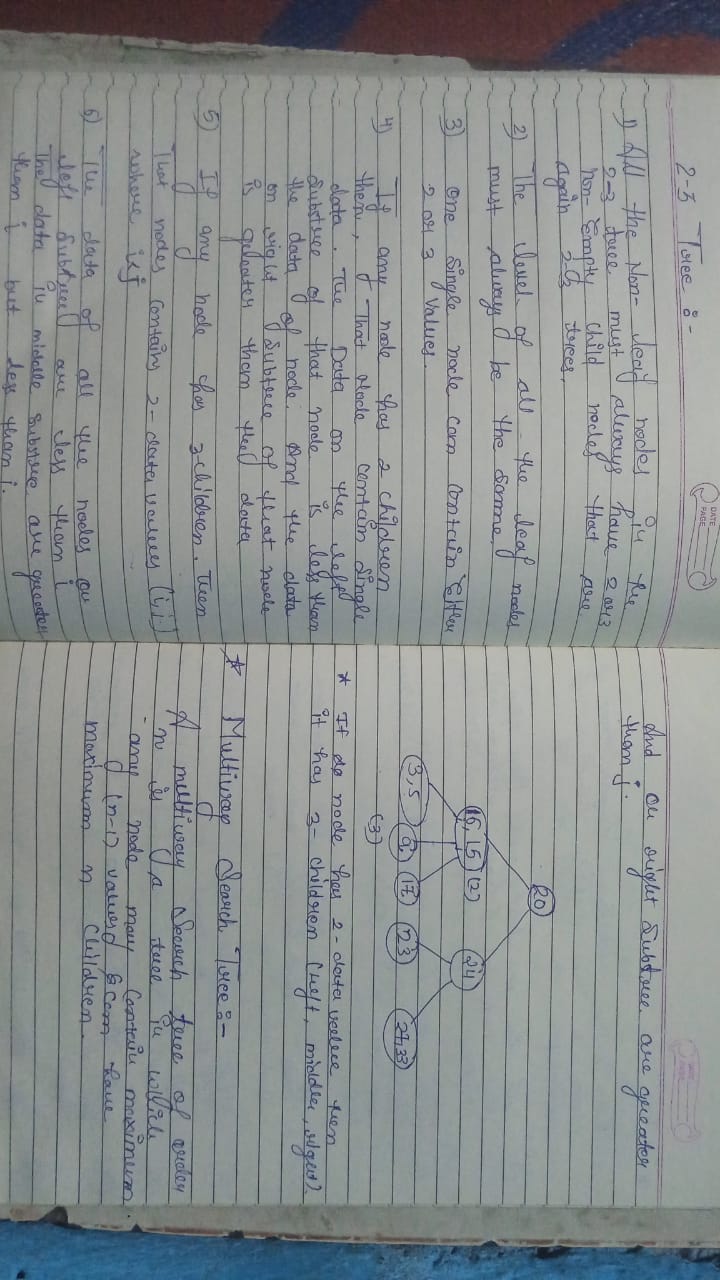 DATE
PAGE
2-3 Tree :-
1) All the Non- leaf nodes in the
2-3 tree must always have 2 or 3
non-Empty child nodes that are
again 2-3 trees.
2) The level of all the leaf nodes
must always be the same.
3) One single node can contain Either
2 or 3 values.
4) If any node has 2 children
then, That Node contain single
data. The Data on the left
Substree of that node is less than
the data of node. And the data
on right Subtree of that node
is greater than the data
5) If any node has 3-children. Then
That nodes contains 2-data values (i,j)
where i<j
6) The data of all the nodes on
left Subtree are less than i
The data in middle substree are greater
than i but less than j.
DATE
PAGE
And on right Subtree are greater
than j.
20
16, 15 (2) 24
3,5 9 17 23 27,33
(3)
* If do node has 2-data value then
it has 3-children (left, middle, right).
* Multiway Search Tree :-
A multiway Search tree of order
n is a tree in which
any node may contain maximum
(n-1) values & can have
maximum n children.